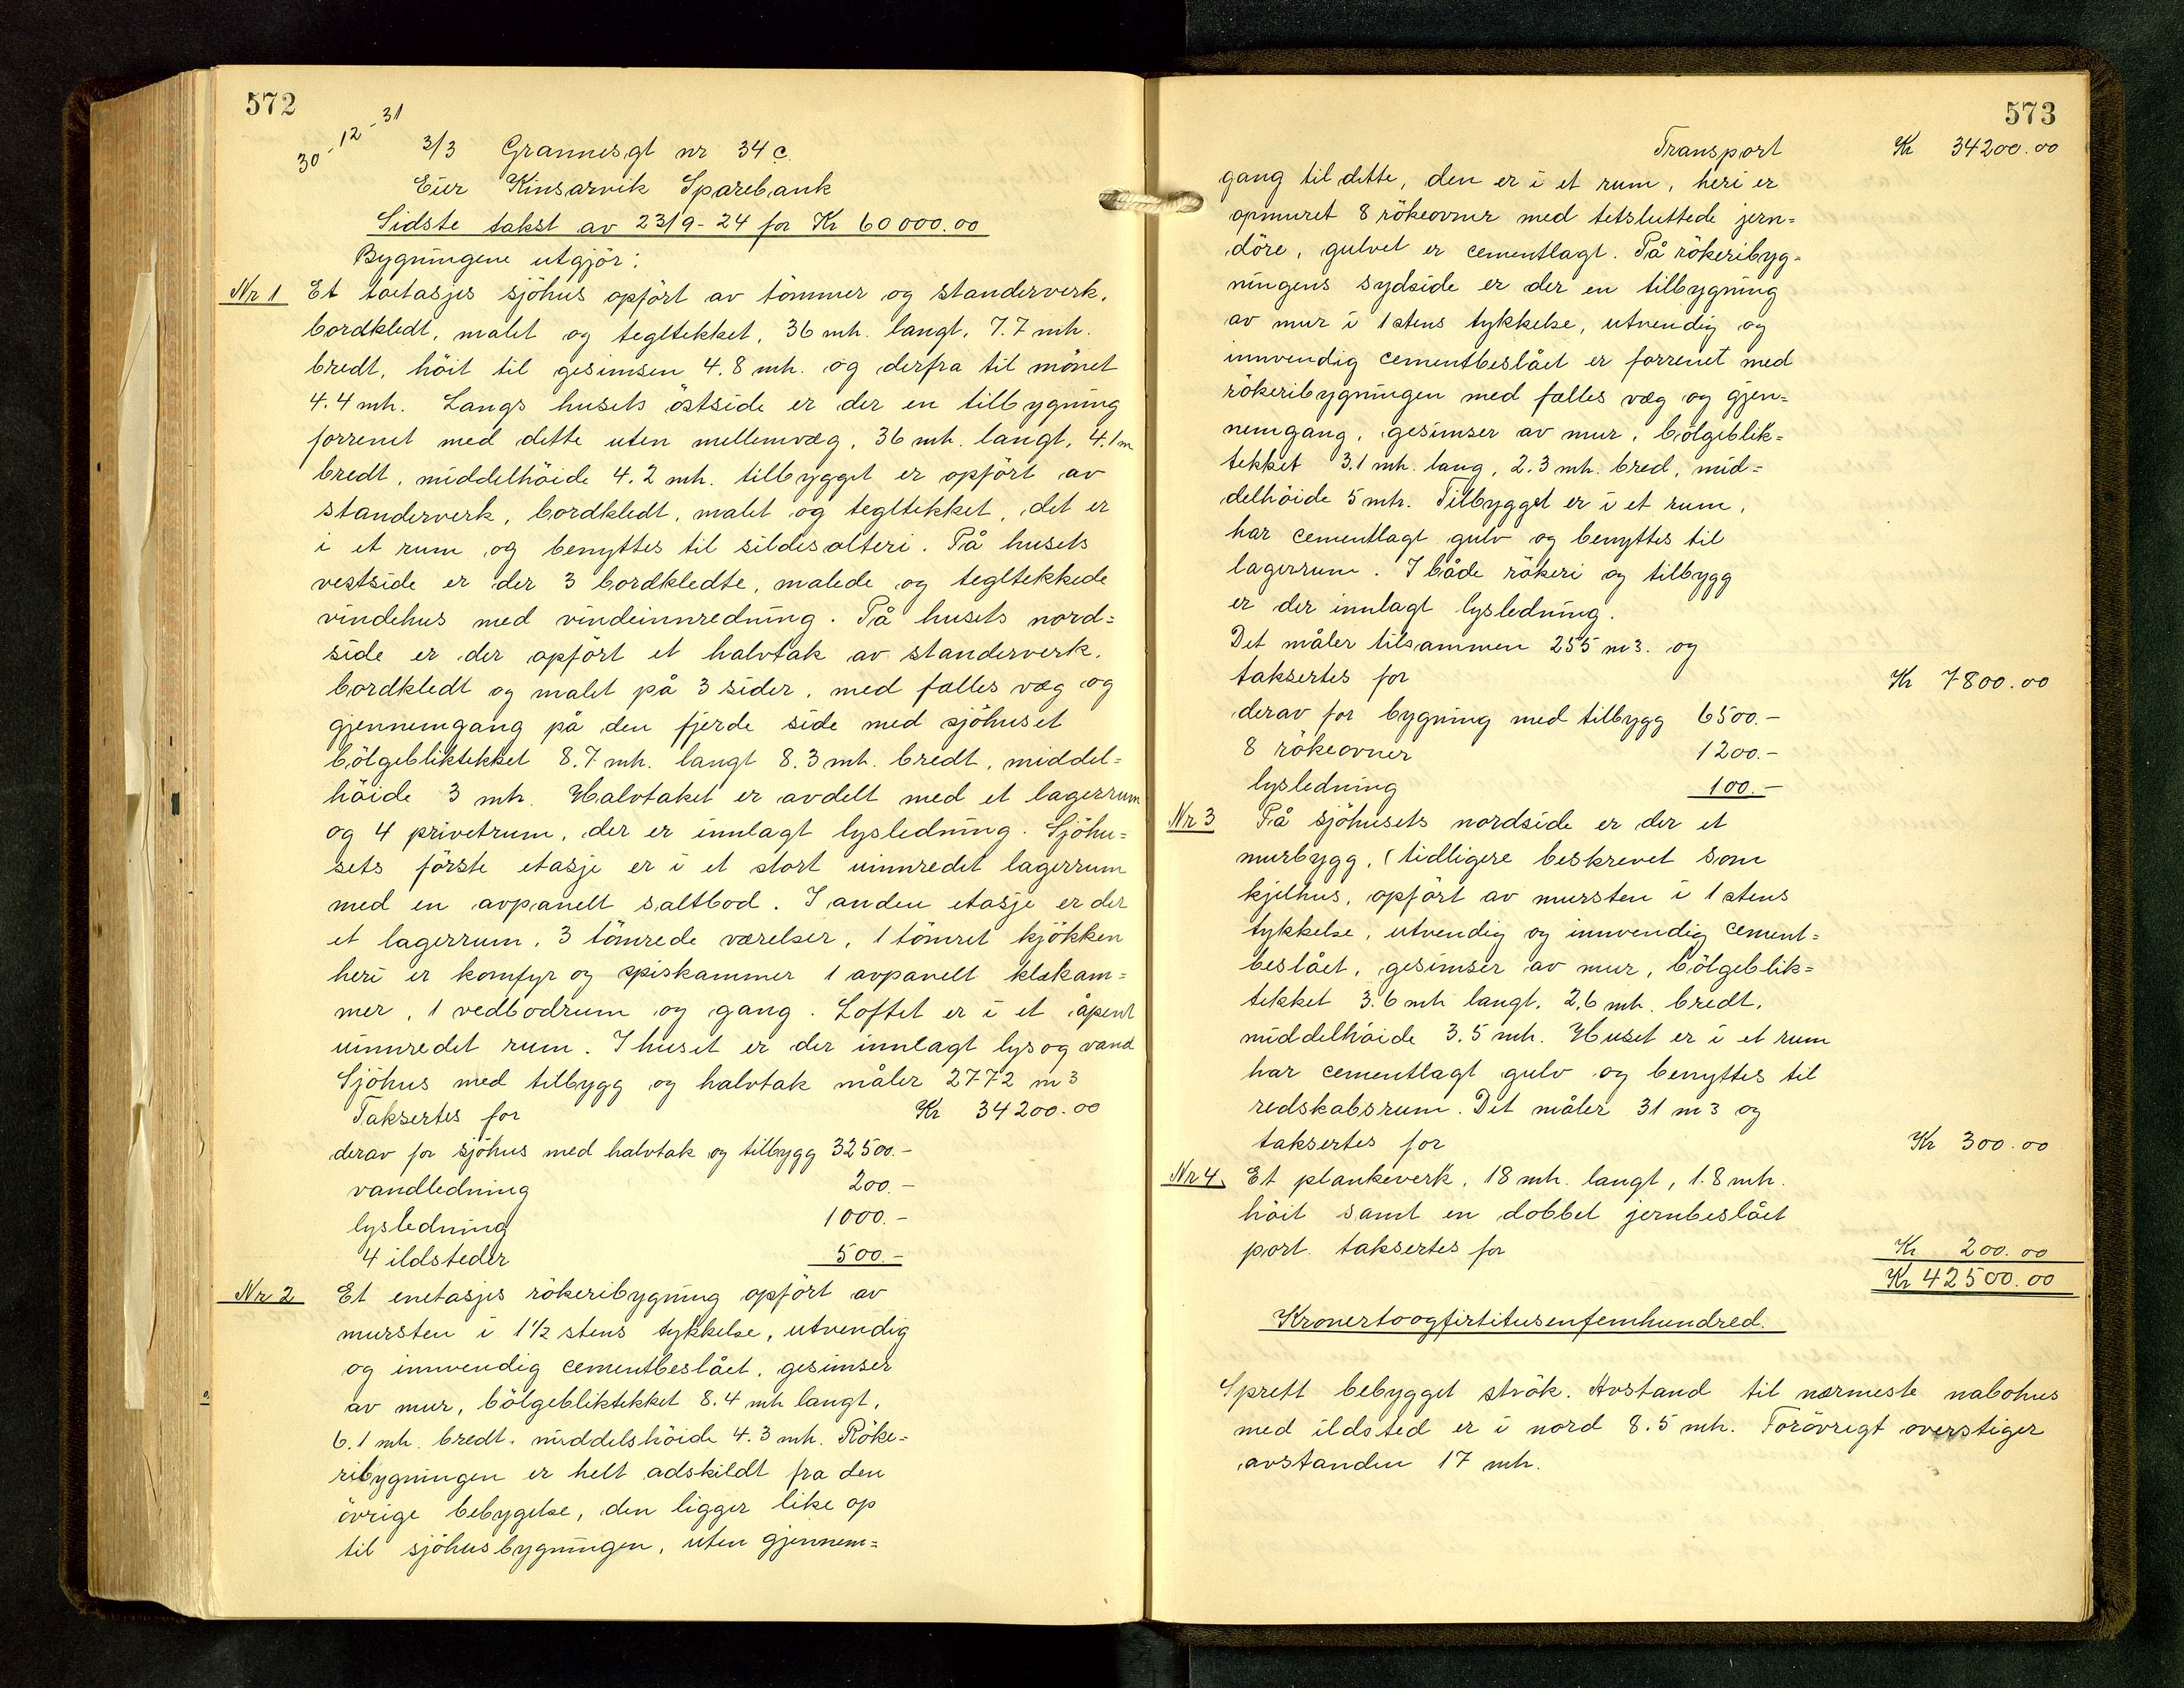 572
30-12-31
3/3 Grannesgt nr 34 c.
Eier Kinsarvik Sparebank
Sidste takst av 23/9-24 for Kr 60000.00
Bygningene utgjör:
Nr 1 Et toetasjes sjöhus opfört av tömmer og standerverk,
bordkledt, malet og tegltekket, 36 mtr. langt, 7.7 mtr.
bredt, höit til gesimsen 4.8 mtr. og derfra til mönet
4.4 mtr. Langs husets östside er der en tilbygning
forrenet med dette uten mellemvæg, 36 mtr. langt, 4.1 m
bredt, middelhöide 4.2 mtr. tilbygget er opfört av
standerverk, bordkledt, malet og tegltekket, det er
i et rum og benyttes til sildesalteri. På husets
vestside er der 3 bordkledte, malede og tegltekkede
vindehus med vindeinnredning. På husets nord=
side er der opfört et halvtak av standerverk,
bordkledt og malet på 3 sider, med fælles væg og
gjennemgang på den fjerde side med sjöhuset
bölgebliktekket 8.7 mtr. langt 8.3 mtr. bredt, middel=
höide 3 mtr. Halvtaket er avdelt med et lagerrum
og 4 privetrum, der er innlagt lysledning. Sjöhu=
sets förste etasje er i et stort uinnredet lagerrum
med en avpanelt saltbod. I anden etasje er der
et lagerrum, 3 tömrede værelser, 1 tömret kjökken
heri er komfyr og spiskammer 1 avpanelt klækam=
mer, 1 vedbodrum og gang. Loftet er i et åpent
uinnredet rum. I huset er der innlagt lys og vand
Sjöhus med tilbygg og halvtak måler 2772 m3
Taksertes for Kr 34200.00
derav for sjöhus med halvtak og tilbygg 32500.-
vandledning 200.-
lysledning 1000.-
4 ildsteder 500.-
Nr 2 Et enetasjes rökeribygning opfört av
mursten i 1 1/2 stens tykkelse, utvendig
og innvendig cementbeslået, gesimser
av mur, bölgebliktekket 8.4 mtr langt,
6.1 mtr. bredt, middelshöide 4.3 mtr. Röke=
ribygningen er helt adskildt fra den
övrige bebygelse, den ligger like op
til sjöhusbygningen, uten gjennem=
573
Transport Kr 34200.00
gang til dette, den er i et rum, heri er
opmuret 8 rökeovner med tetsluttede jern=
döre, gulvet er cementlagt. På rökeribyg=
ningens sydside er der en tilbygning
av mur i 1 stens tykkelse, utvendig og
innvendig cementbeslået er forrenet med
rökeribygningen med fælles væg og gjen=
nemgang, gesimser av mur, bölgeblik=
tekket 3.1 mtr. lang, 2.3 mtr. bred, mid=
delhöide 5 mtr. Tilbygget er i et rum,
har cementlagt gulv og benyttes til
lagerrum. I både rökeri og tilbygg
er der innlagt lysledning.
Det måler tilsammen 255 m3. og
taksertes for Kr 7800.00
derav for bygning med tilbygg 6500.-
8 rökeovner 1200.-
lysledning 100.-
Nr 3 På sjöhusets nordside er der et
murbygg, (tidligere beskrevet som
kjelhus, opfört av mursten i 1 stens
tykkelse, utvendig og innvendig cement=
beslået, gesimser av mur, bölgeblik=
tekket 3.6 mtr langt, 2.6 mtr. bredt,
middelhöide 3.5 mtr. Huset er i et rum
har cementlagt gulv og benyttes til
redskabsrum. Det måler 31 m3 og
taksertes for Kr 300.00
Nr 4. Et plankeverk, 18 mtr. langt, 1.8 mtr.
höit samt en dobbel jernbeslået
port. taksertes for Kr 200.00
Kr 42500.00
Kronertoogfirtitusenfemhundred.
Spredt bebygget strök. Avstand til nærmeste nabohus
med ildsted er i nord 8.5 mtr. Forövrigt overstiger
avstanden 17 mtr.